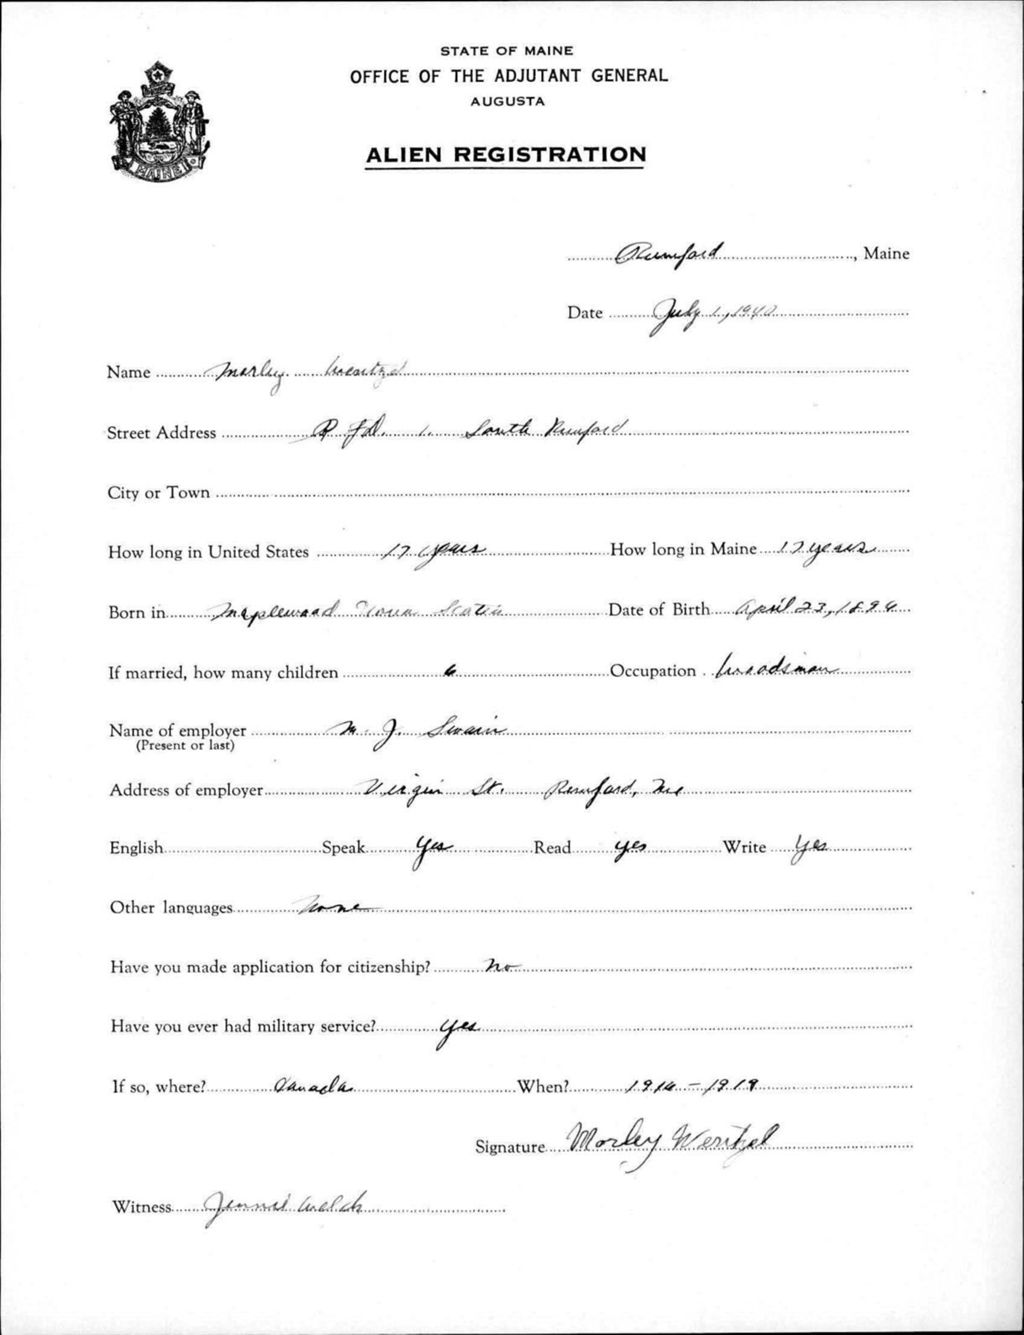 STATE OF MAINE
OFFICE OF THE ADJUTANT GENERAL
AUGUSTA
ALIEN REGISTRATION
MAINE
Rumford, Maine
Date July 1, 1940
Name Morley Wentzel
Street Address R.F.D. 1. South Rumford
City or Town
How long in United States 17 years How long in Maine 17 years
Born in Maplewood Nova Scotia Date of Birth April 23, 1896
If married, how many children 6 Occupation Woodsman
Name of employer M. J. Swain
(Present or last)
Address of employer Virgin St. Rumford, Me
English Speak Yes Read yes Write Yes
Other languages None
Have you made application for citizenship? No
Have you ever had military service? Yes
If so, where? Canada When? 1916-1919
Signature Morley Wentzel
Witness Jennie Welch